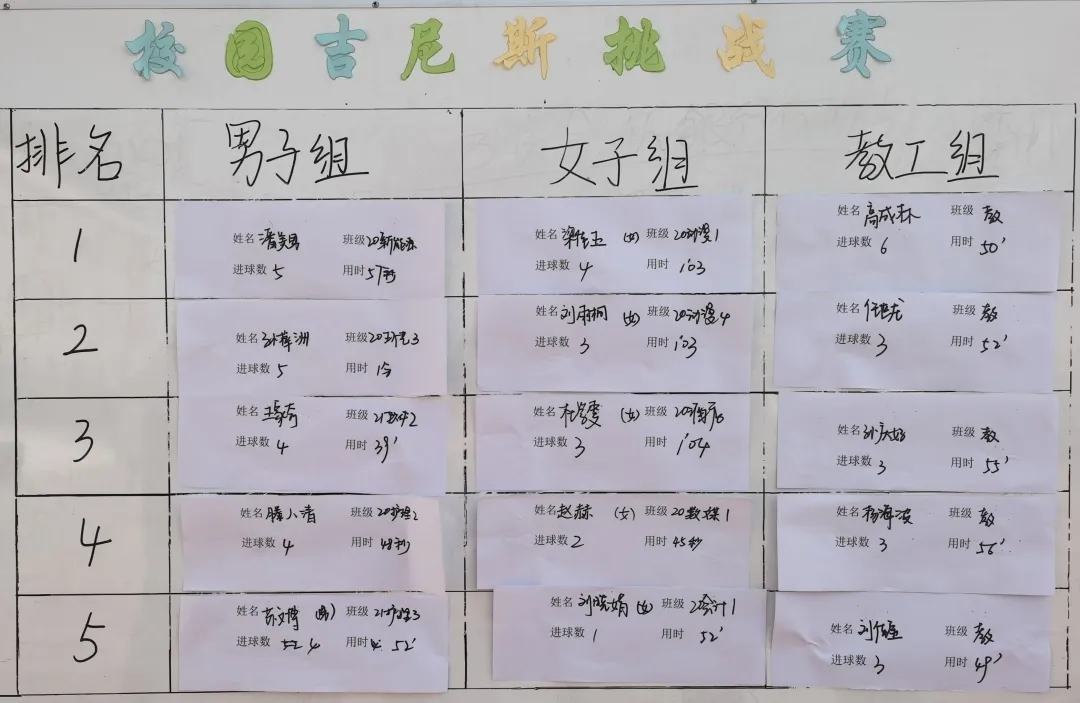 校园吉尼斯挑战赛
排名 男子组 女子组 教工组
1
姓名 班级
进球数 5 用时 57秒
姓名 (女) 班级 20动漫1
进球数 4 用时 1'03
姓名 高成林 班级 教
进球数 6 用时 50'
2
姓名 班级
进球数 5 用时 1分
姓名 刘雨桐 (女) 班级 20动漫4
进球数 3 用时 1'03
姓名 班级 教
进球数 3 用时 52'
3
姓名 班级
进球数 4 用时 39'
姓名 (女) 班级
进球数 3 用时 1'04
姓名 班级 教
进球数 3 用时 55'
4
姓名 滕小清 班级 20护理2
进球数 4 用时 48秒
姓名 赵赫 (女) 班级 20数媒1
进球数 2 用时 45秒
姓名 杨海波 班级 教
进球数 3 用时 56'
5
姓名 班级 21护理3
进球数 4 用时 52'
姓名 刘晓娟 (女) 班级
进球数 1 用时 52'
姓名 班级 教
进球数 3 用时 49'